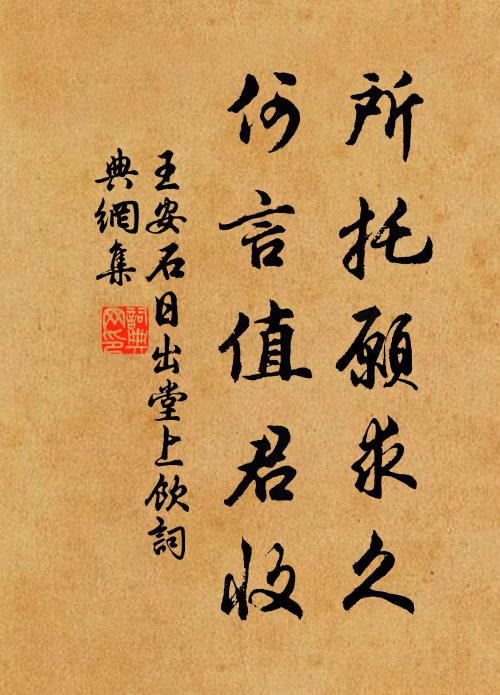 所托願求久
何言值君收
王安石日出堂上飲詞
典網集
詞典
网印